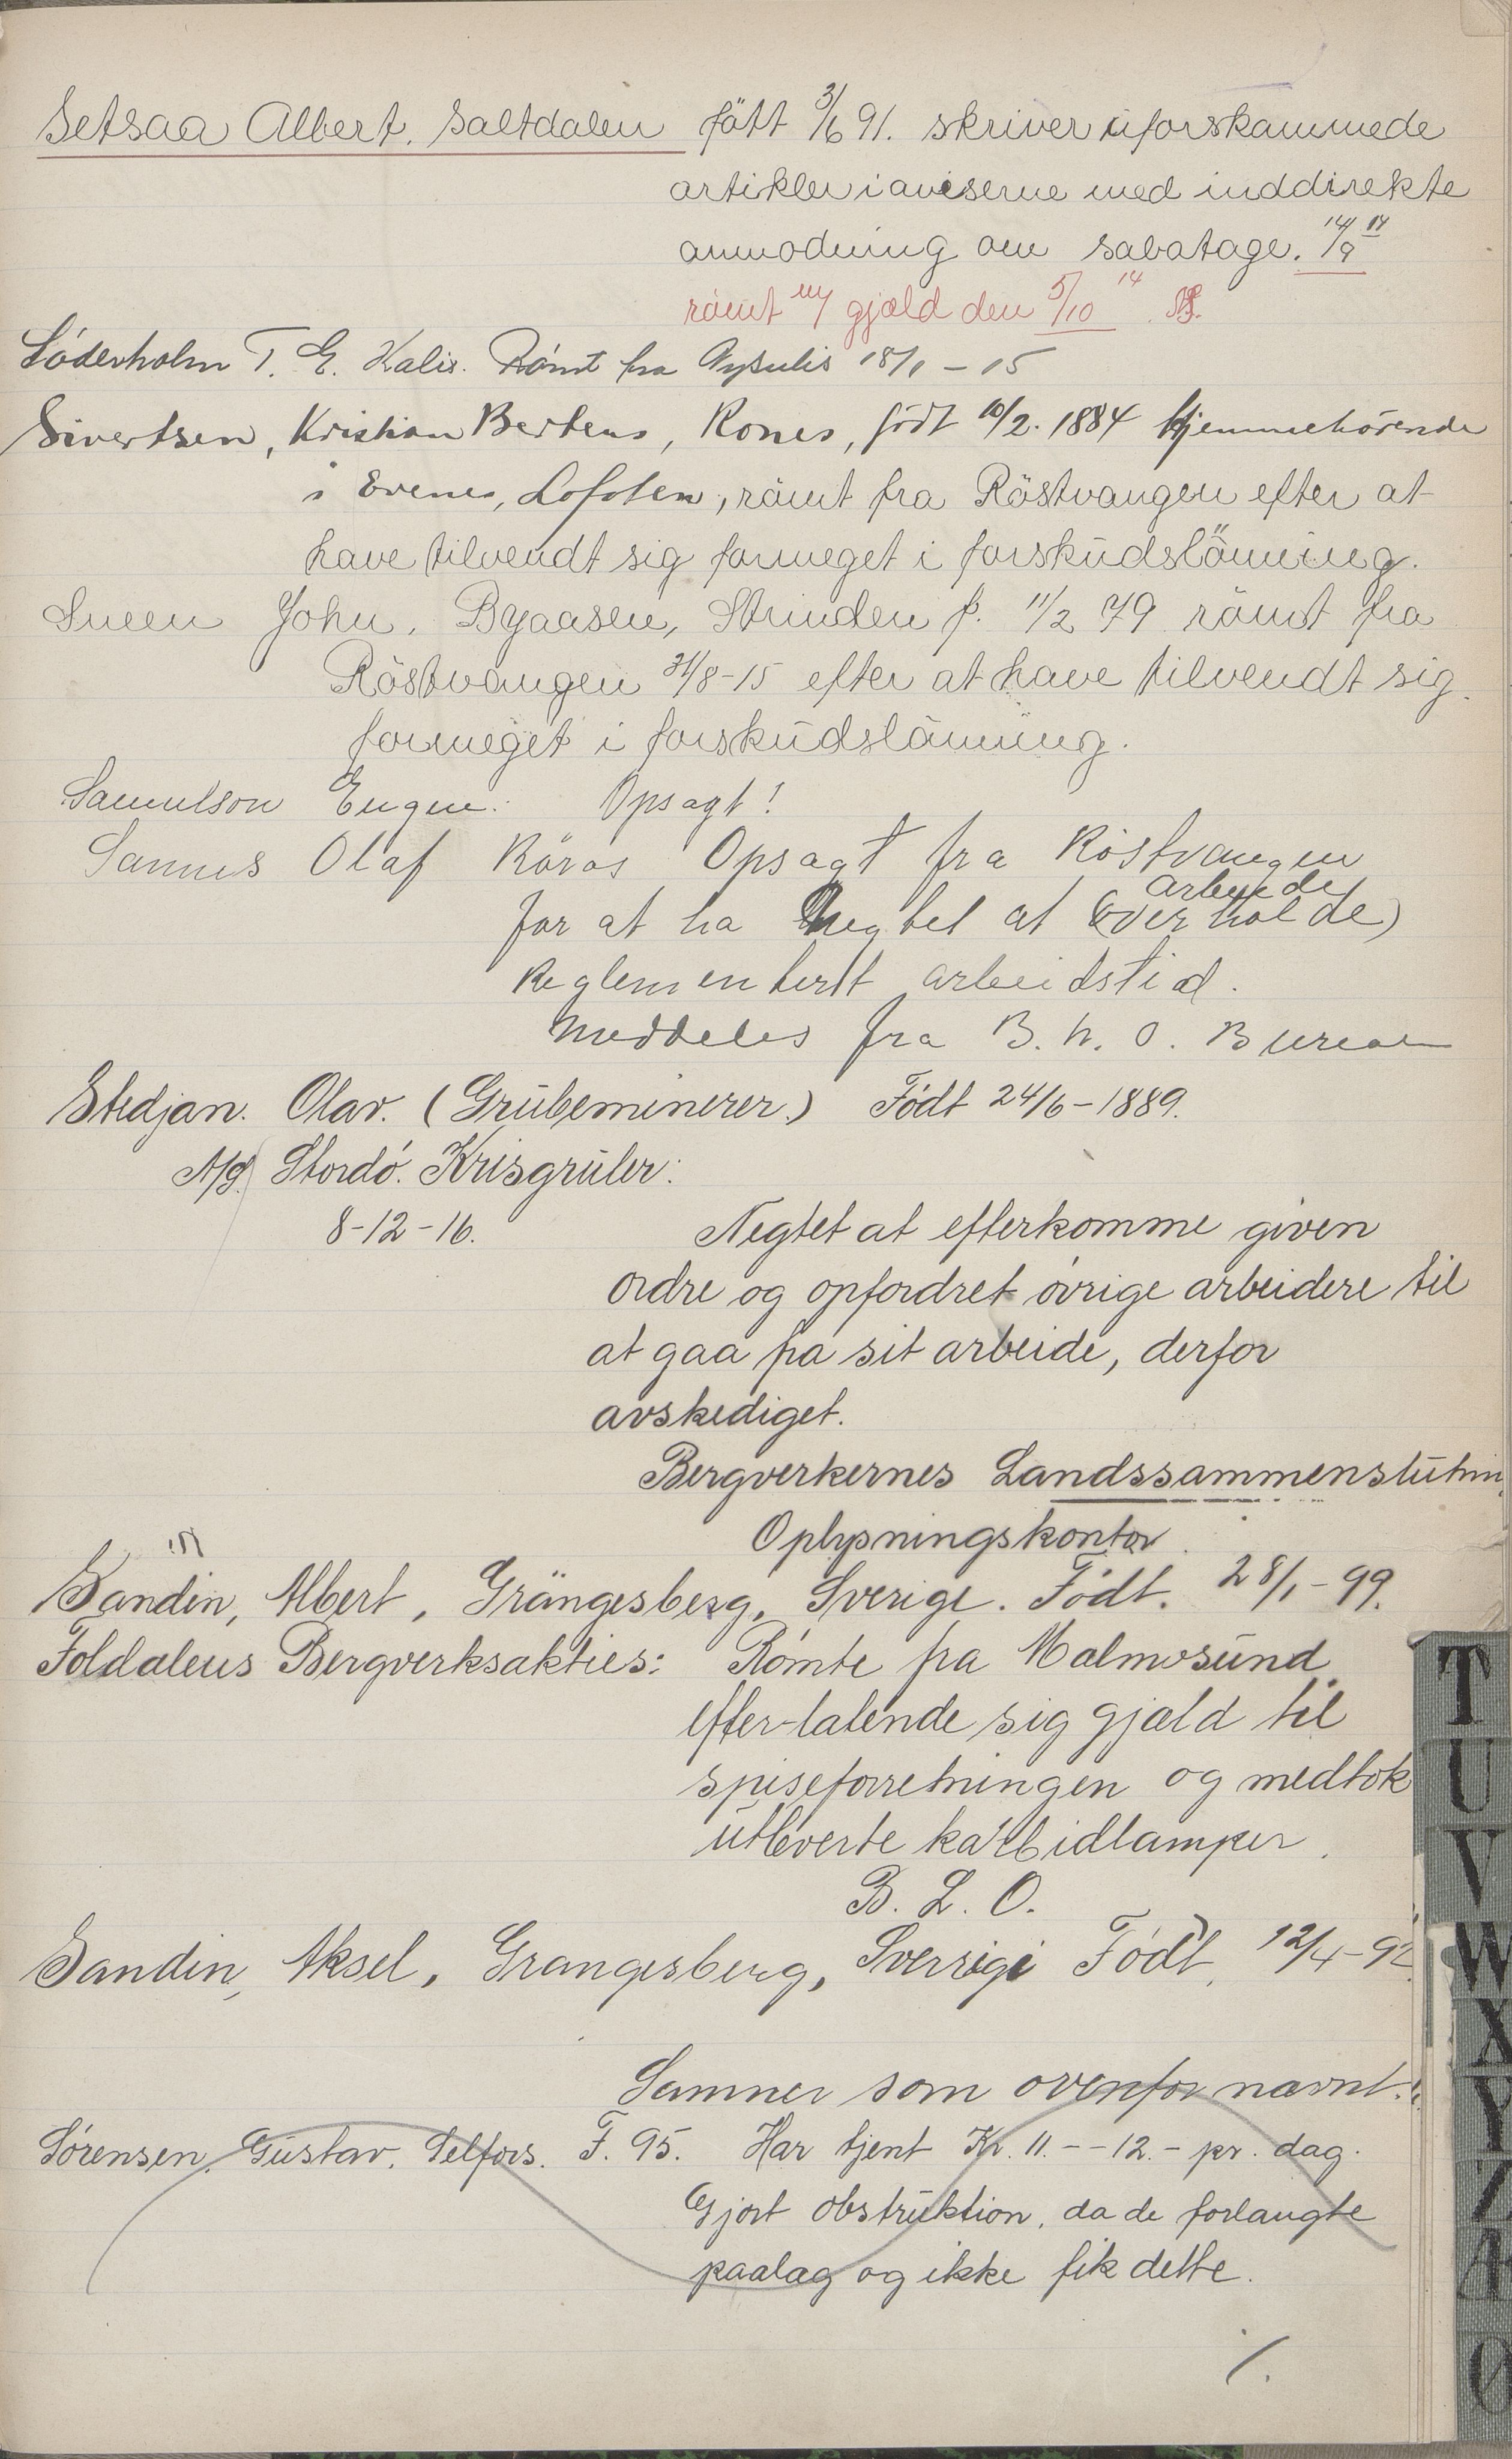 Setsaa Albert. Saltdalen fött 3/6 91. skriver uforskammede
artikler i aviserne med inddirekte
anmodning om sabotage. 14/9 14
römt m/ gjæld den 5/10 14
Söderholm T. E. Kalix. Römt fra 18/1 - 15
Sivertsen, Kristian Bertens, Rones, födt 10/2. 1884 hjemmehörende
i Evenes, Lofoten, römt fra Röstvangen efter at
have tilvendt sig formeget i forskudslönning.
Sneen John. Byaasen, Strinden f. 11/2 79 römt fra
Röstvangen 31/8-15 efter at have tilvendt sig
formeget i forskudslönning.
Samulson Eugen. Opsagt!
Sannes Olaf Röros Opsagt fra Röstvangen
for at ha negtet at (overholde) arbeide
Reglementert arbeidstid.
Meddeles fra B. h. O. Bureau
Stedjan. Olav. (Grubeminerer.) Födt 24/6-1889.
A/S. Stordö. Kisgruber:
8-12-16. Negtet at efterkomme given
ordre og opfordret övrige arbeidere til
at gaa fra sit arbeide, derfor
avskediget.
Bergverkernes Landssammenslutnin
Oplysningskontor.
Sandin, Albert, Grängesberg, Sverige. Födt. 28/1-99.
Foldalens Bergverksakties: Römte fra Malmosund
efterlatende sig gjæld til
spiseforretningen og medtok
utleverte karbidlamper.
B. L. O.
Sandin, Aksel, Grangesberg, Sverrige Födt. 12/4-92
Samner som ovenfor nævnt.
Sørensen. Gustav. Selfors. F. 95. Har tjent Kr. 11.- - 12.- pr. dag.
Gjort obstruktion, da de forlangte
paalæg og ikke fik dette.
/.
T
U
V
W
X
Y
Z
Æ
Ø